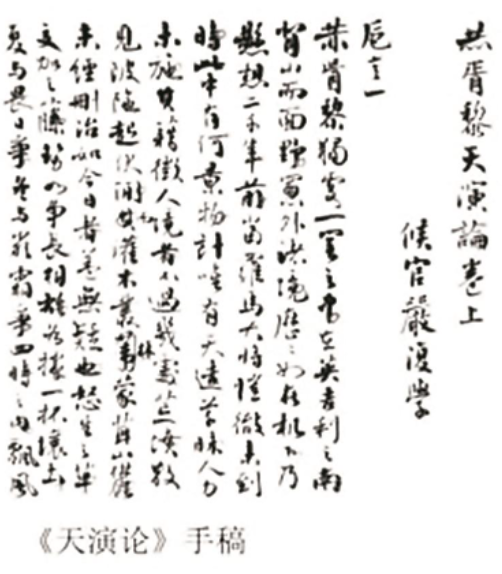 赫胥黎天演論卷上
候官嚴復學
卮言一
赫胥黎獨處一室之中在英吉利之南
背山而面野窗外諸境歷歷如在机下乃
懸想二千年前當羅馬大將愷徹未到
時此中有何景物計唯有天造草昧人功
未施其藉徵人境者不過幾處荒墳散
見陂陀起伏間其灌木叢林蒙茸山麓
未經刪治如今日者蓋無疑也怒生之草
交加之藤勢如爭長相雄各據一抔壤土
夏與畏日爭冬與嚴霜爭四時之內飄風
《天演论》手稿